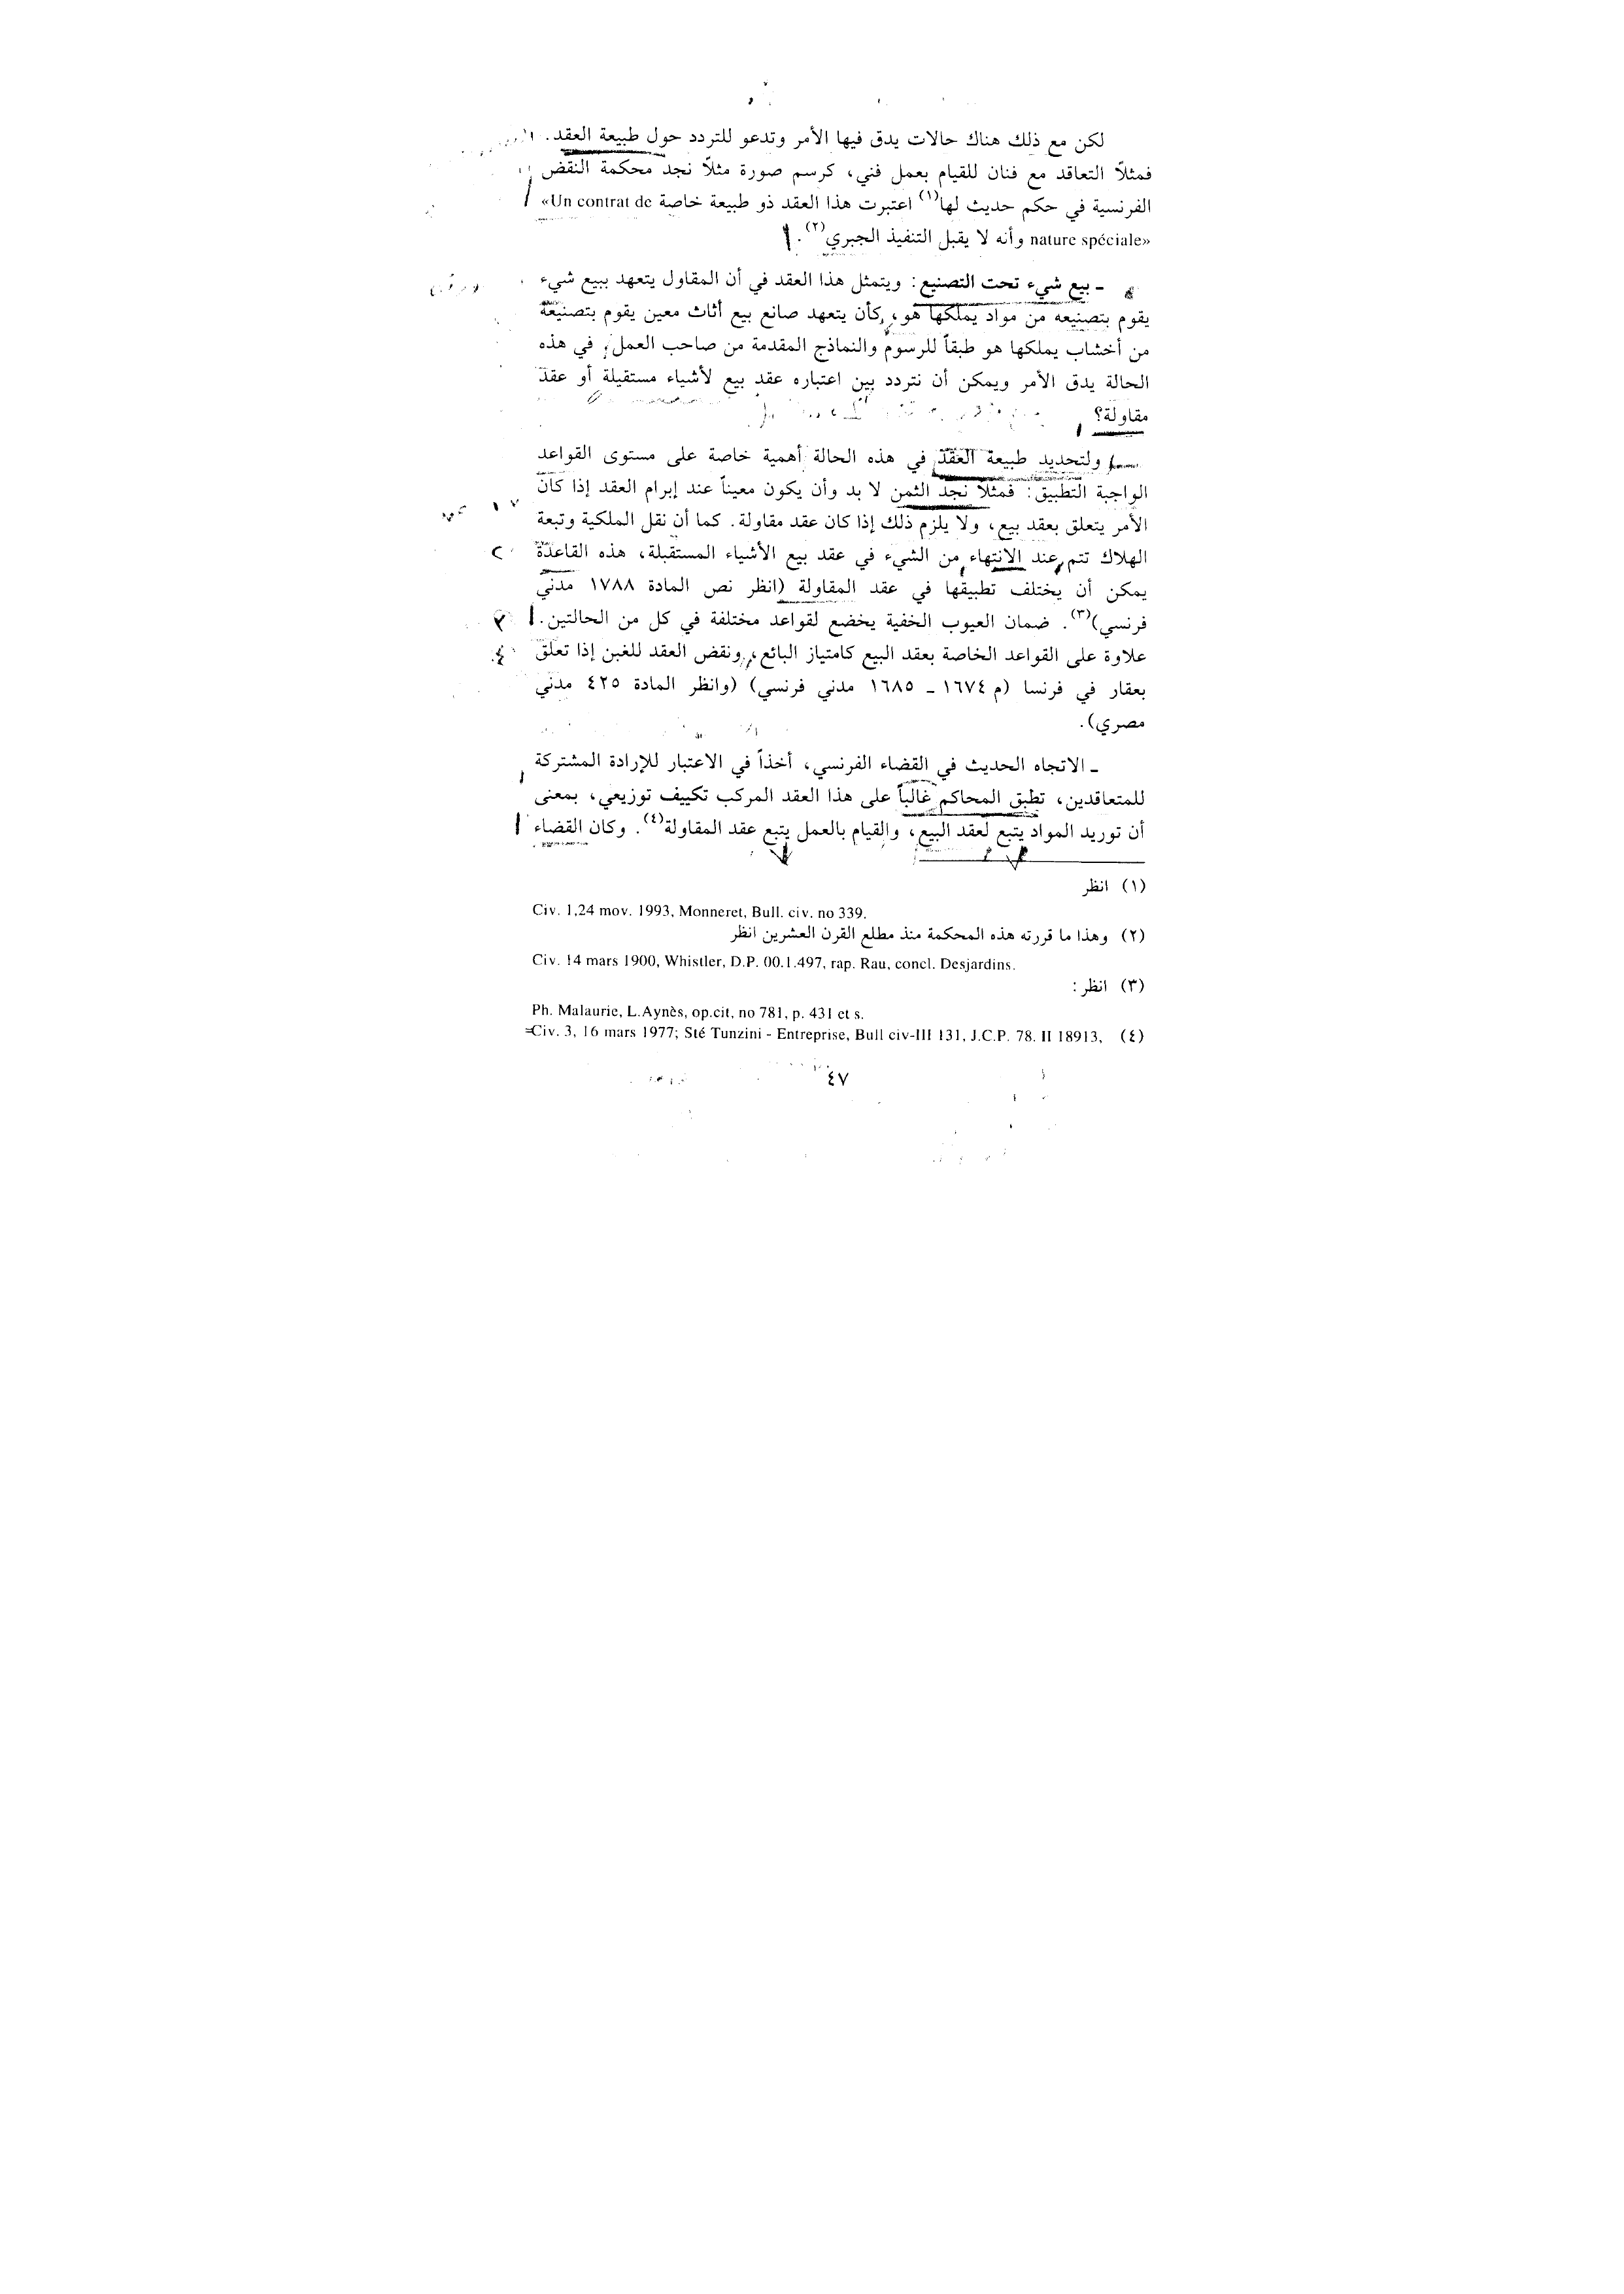 لكن مع ذلك هناك حالات يدق فيها الأمر وتدعو للتردد حول طبيعة العقد.
فمثلاً التعاقد مع فنان للقيام بعمل فني، كرسم صورة مثلاً نجد محكمة النقض
الفرنسية في حكم حديث لها(١) اعتبرت هذا العقد ذو طبيعة خاصة «Un contrat de
nature spéciale» وأنه لا يقبل التنفيذ الجبري(٢).
ـ بيع شيء تحت التصنيع: ويتمثل هذا العقد في أن المقاول يتعهد ببيع شيء
يقوم بتصنيعه من مواد يملكها هو، كأن يتعهد صانع بيع أثاث معين يقوم بتصنيعه
من أخشاب يملكها هو طبقاً للرسوم والنماذج المقدمة من صاحب العمل، في هذه
الحالة يدق الأمر ويمكن أن نتردد بين اعتباره عقد بيع لأشياء مستقبلة أو عقد
مقاولة؟
ولتحديد طبيعة العقد في هذه الحالة أهمية خاصة على مستوى القواعد
الواجبة التطبيق: فمثلاً نجد الثمن لا بد وأن يكون معيناً عند إبرام العقد إذا كان
الأمر يتعلق بعقد بيع، ولا يلزم ذلك إذا كان عقد مقاولة. كما أن نقل الملكية وتبعة
الهلاك تتم عند الانتهاء من الشيء في عقد بيع الأشياء المستقبلة، هذه القاعدة
يمكن أن يختلف تطبيقها في عقد المقاولة (انظر نص المادة ١٧٨٨ مدني
فرنسي)(٣). ضمان العيوب الخفية يخضع لقواعد مختلفة في كل من الحالتين.
علاوة على القواعد الخاصة بعقد البيع كامتياز البائع، ونقض العقد للغبن إذا تعلق
بعقار في فرنسا (م ١٦٧٤ ـ ١٦٨٥ مدني فرنسي) (وانظر المادة ٤٢٥ مدني
مصري).
ـ الاتجاه الحديث في القضاء الفرنسي، أخذاً في الاعتبار للإرادة المشتركة
للمتعاقدين، تطبق المحاكم غالباً على هذا العقد المركب تكييف توزيعي، بمعنى
أن توريد المواد يتبع لعقد البيع، والقيام بالعمل يتبع عقد المقاولة(٤). وكان القضاء
(١) انظر
Civ. 1,24 mov. 1993, Monneret, Bull. civ. no 339.
(٢) وهذا ما قررته هذه المحكمة منذ مطلع القرن العشرين انظر
Civ. 14 mars 1900, Whistler, D.P. 00.1.497, rap. Rau, concl. Desjardins.
(٣) انظر:
Ph. Malaurie, L.Aynès, op.cit, no 781, p. 431 et s.
(٤) Civ. 3, 16 mars 1977; Sté Tunzini - Entreprise, Bull civ-III 131, J.C.P. 78. II 18913, =
٤٧